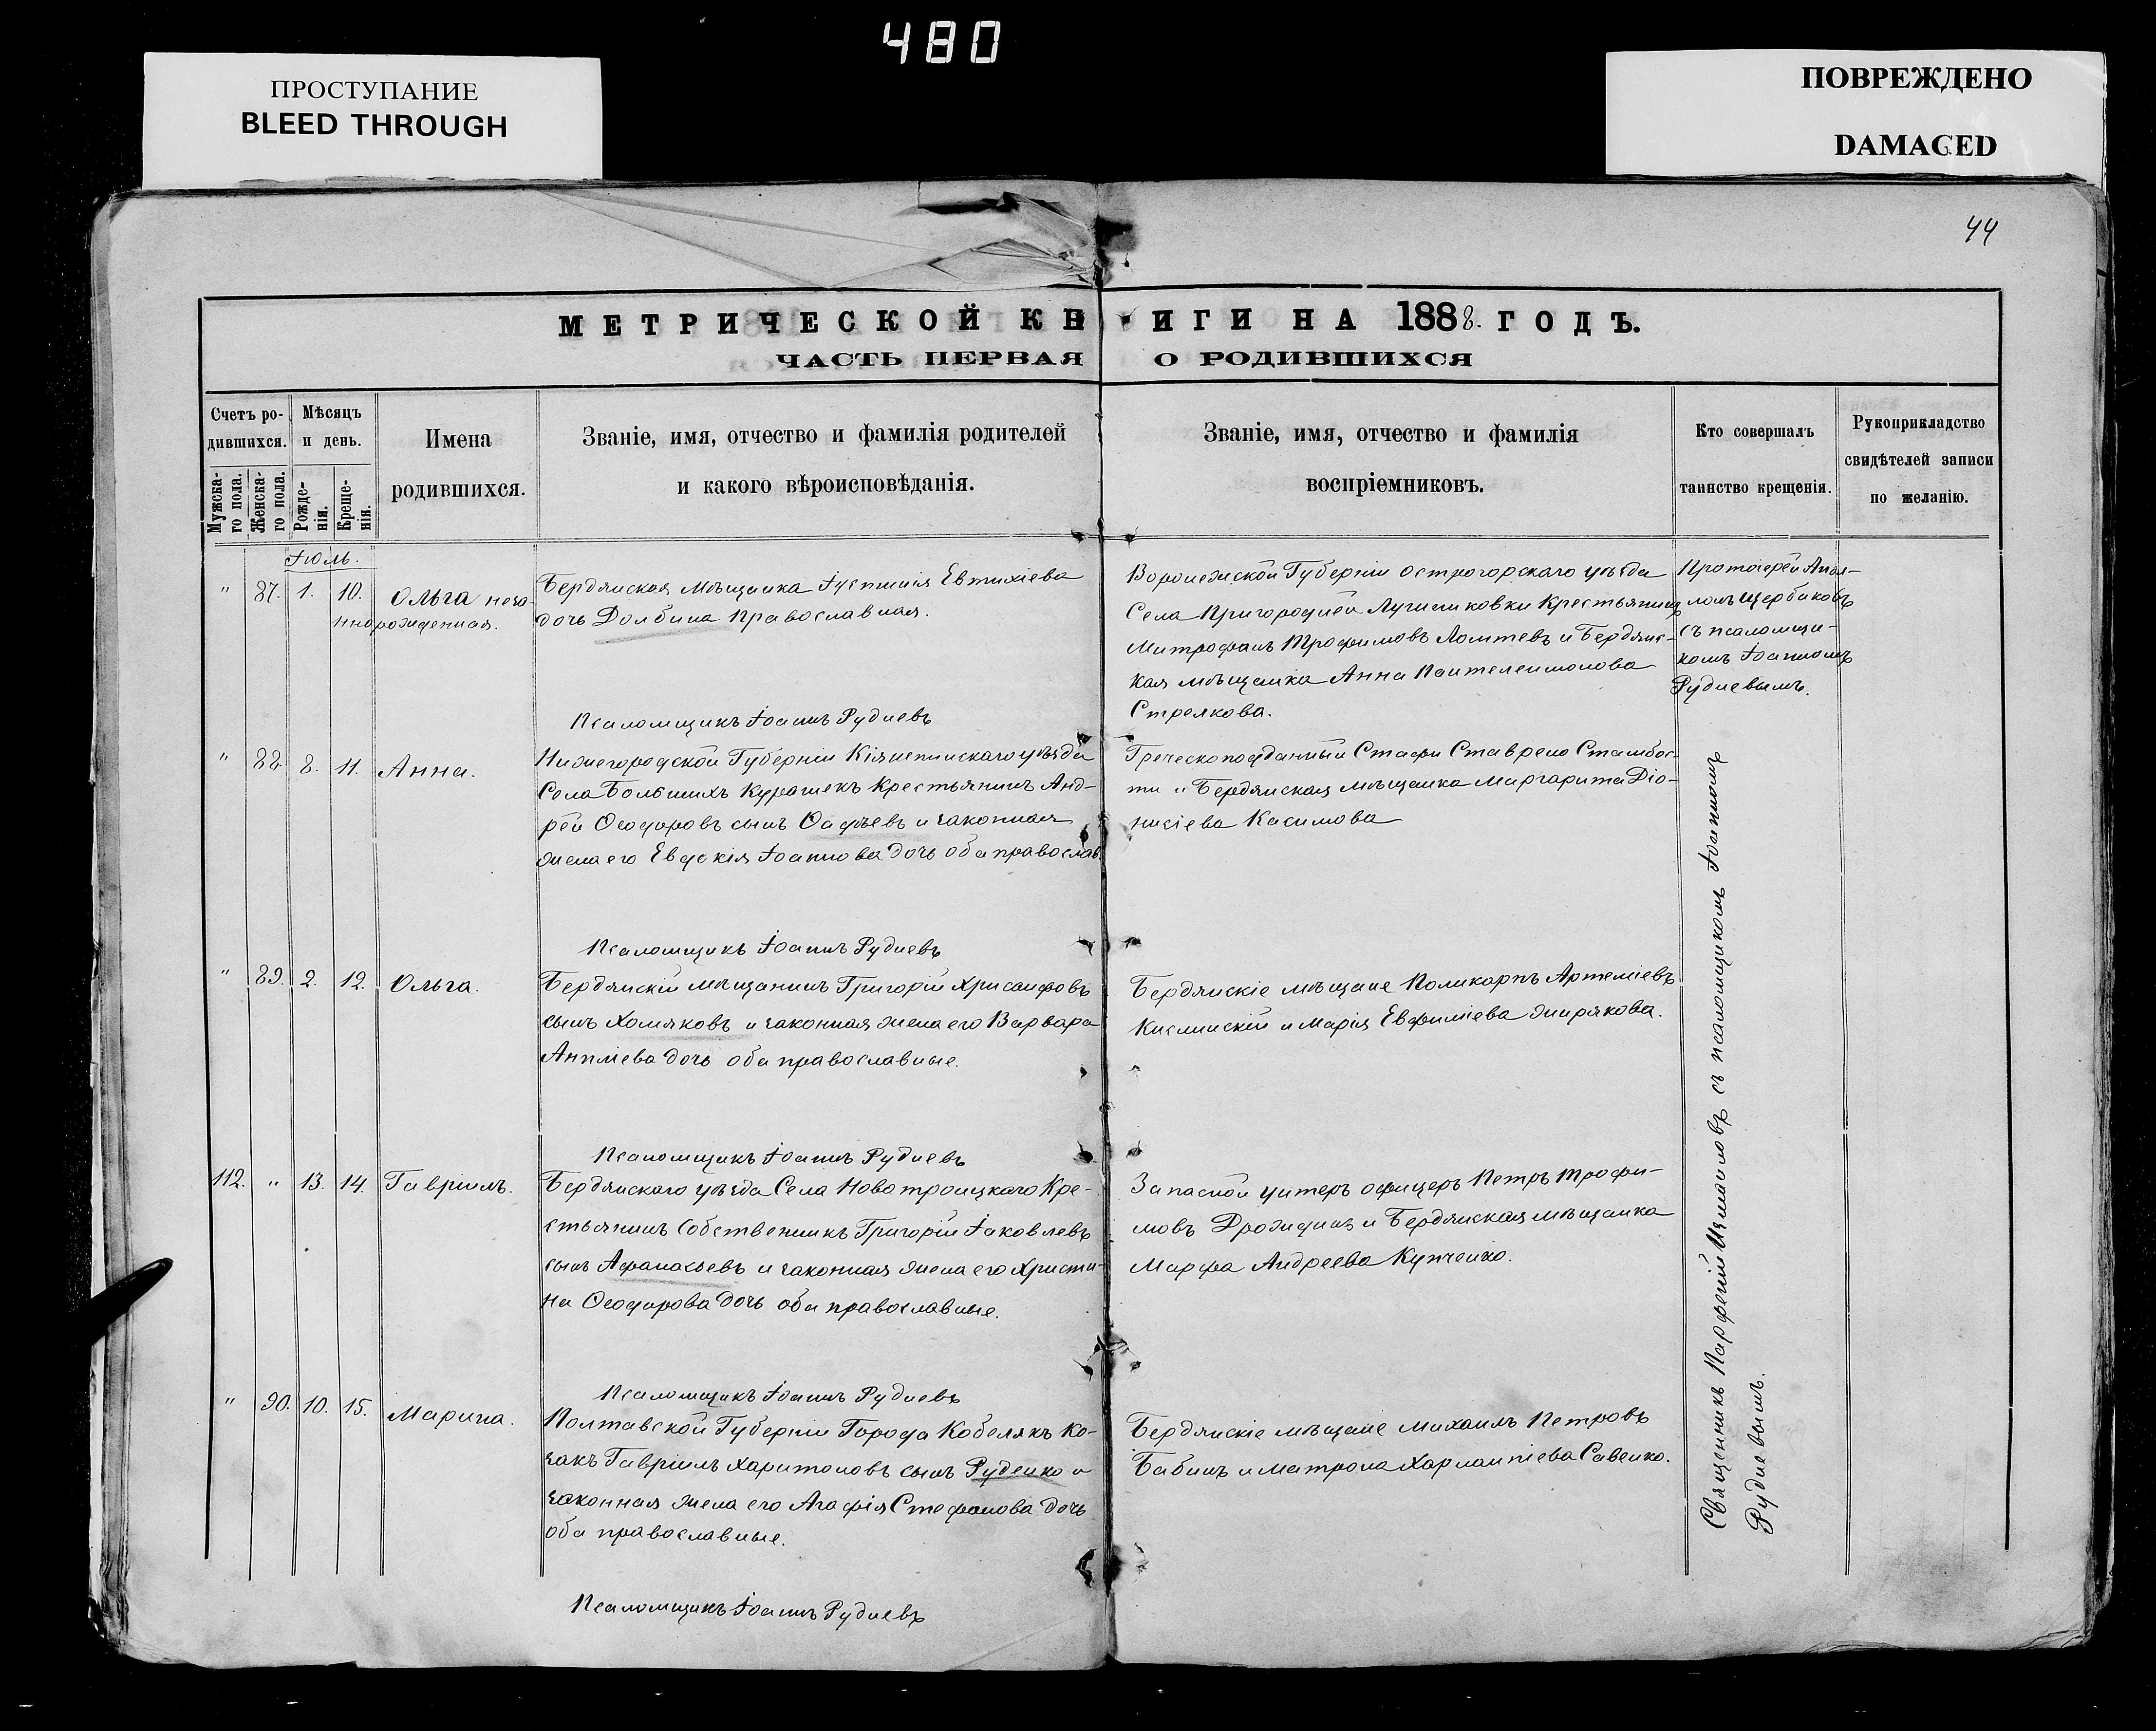 480
ПРОСТУПАНИЕ
BLEED THROUGH
ПОВРЕЖДЕНО
DAMAGED
44
МЕТРИЧЕСКОЙ КНИГИ НА 1888. ГОДЪ.
ЧАСТЬ ПЕРВАЯ О РОДИВШИХСЯ
Счетъ ро-
дившихся.
Мужска-
го пола.
Женска-
го пола.
Мѣсяцъ
и день.
Рожде-
нія.
Креще-
нія.
Имена
родившихся.
Званіе, имя, отчество и фамилія родителей
и какого вѣроисповѣданія.
Званіе, имя, отчество и фамилія
воспріемниковъ.
Кто совершалъ
таинство крещенія.
Рукоприкладство
свидѣтелей записи
по желанію.
Іюль.
" 87. 1. 10. Ольга неза-
ннорожденная.
Бердянская мѣщанка Іустинія Евтихіева
дочь Долбина Православная.
Псаломщикъ Іоаннъ Рудневъ
Воронежской Губерніи Острогорскаго уѣзда
Села Пригородней Лушниковки Крестьянинъ
Митрофанъ Трофимовъ Ломтевъ и Бердянс-
кая мѣщанка Анна Пантелеимонова
Стрелкова.
Протоіерей Апол-
лонъ Щербаковъ
съ псаломщи-
комъ Іоанномъ
Рудневымъ.
" 88. 8. 11. Анна.
Нижегородской Губерніи уѣзда
Села Большихъ Курашекъ Крестьянинъ Анд-
рей Ѳеодоровъ сынъ и законная
жена его Евдокія Іоаннова дочь оба православ.
Псаломщикъ Іоаннъ Рудневъ
Греческоподданный Стафи Ставрено
ти и Бердянская мѣщанка Маргарита Діо-
нисіева Касимова
" 89. 2. 12. Ольга.
Бердянскій мѣщанинъ Григорій Хрисанфовъ
сынъ Хомяковъ и законная жена его Варвара
дочь оба православные.
Псаломщикъ Іоаннъ Рудневъ
Бердянскіе мѣщане Поликарпъ Артеміевъ
Кислинскій и Марія Евфиміева Жирякова.
112. " 13. 14. Гавріилъ.
Бердянскаго уѣзда Села Новотроицкаго Кре-
стьянинъ Собственникъ Григорій Іаковлевъ
сынъ Афанасьевъ и законная жена его Христи-
на Ѳеодорова дочь оба православные.
Псаломщикъ Іоаннъ Рудневъ
Запасной унтеръ офицеръ Петръ Трофи-
мовъ Дрожджин и Бердянская мѣщанка
Марфа Андреева Купченко.
" 90. 10. 15. Марина.
Полтавской Губерніи Города Кобелякъ Ко-
закъ Гавріилъ Харитоновъ сынъ Руденко и
законная жена его Агафія Стефанова дочь
оба православные.
Псаломщикъ Іоаннъ Рудневъ
Бердянскіе мѣщане Михаилъ Петровъ
Бабинъ и Матрона Харлампіева Савенко.
Священникъ Парфеній Измаиловъ съ псаломщикомъ Іоанномъ
Рудневымъ.